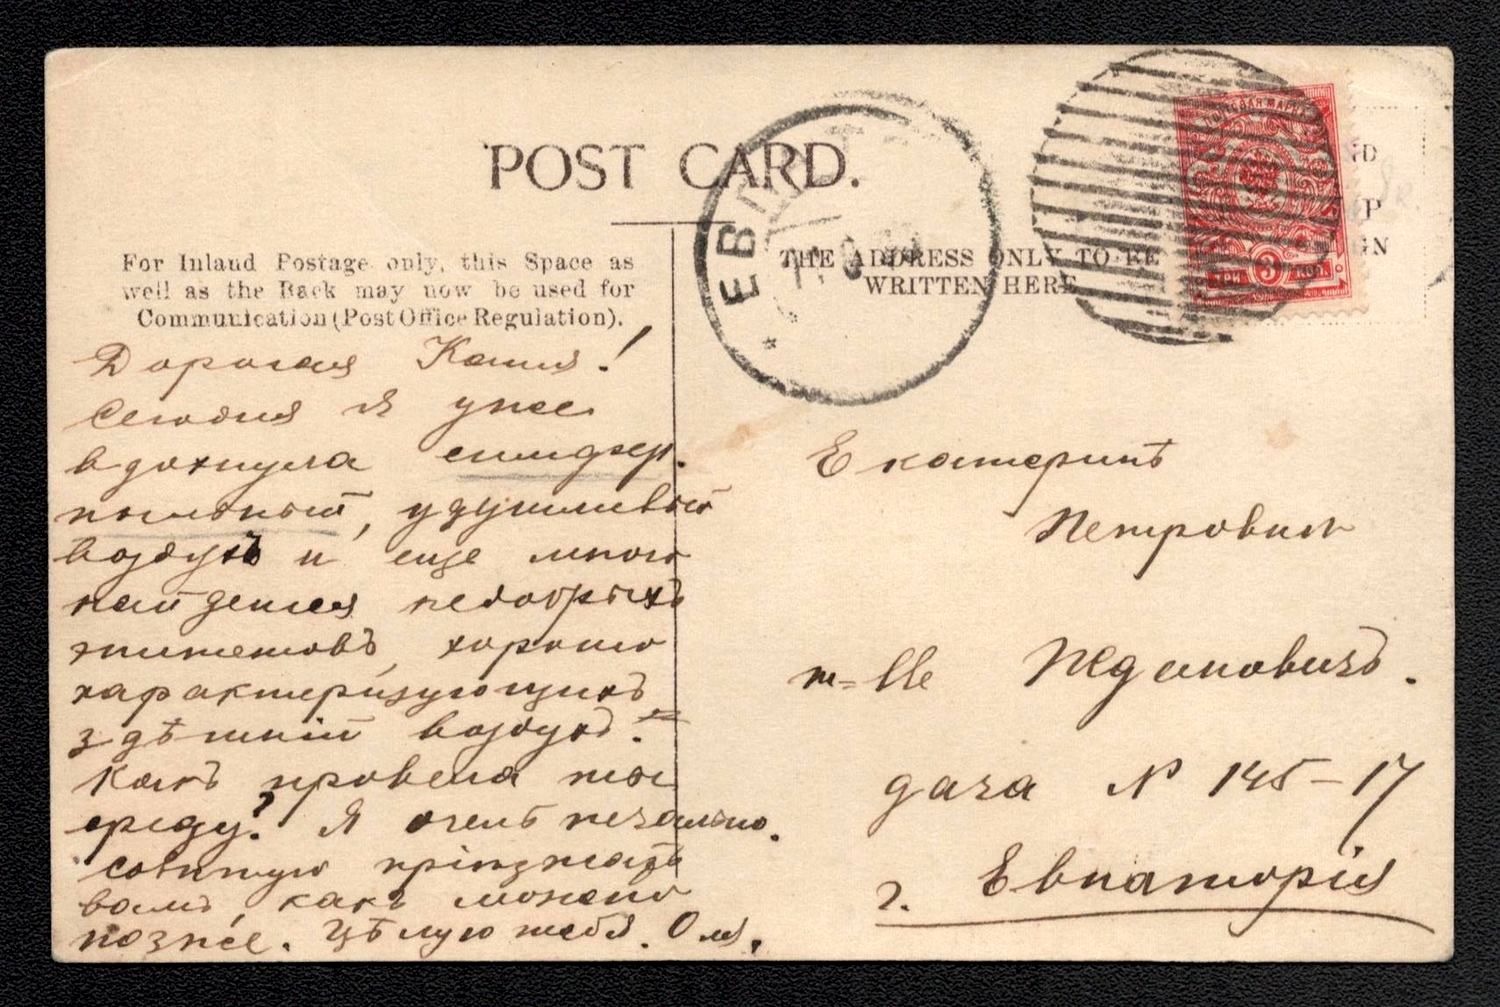 POST CARD.
For Inland Postage only, this Space as
well as the Back may now be used for
Communication (Post Office Regulation).
THE ADDRESS ONLY TO BE
WRITTEN HERE
ПОЧТОВАЯ МАРКА
ТРИ 3 КОП.
ЕВП
Дорогая Катя!
Сегодня я уже
вдохнула симфер.
пыльный, удушливый
воздухъ и еще много
найдется недобрыхъ
эпитетовъ, хорошо
характеризующихъ
здѣшній воздухъ.
Какъ провела ты
среду? Я очень печально.
Совѣтую пріѣзжать
вамъ, какъ можно
позже. Цѣлую тебя. Оля.
Екатеринѣ
Петровнѣ
m-lle Ждановичъ.
дача № 145-17
г. Евпаторія